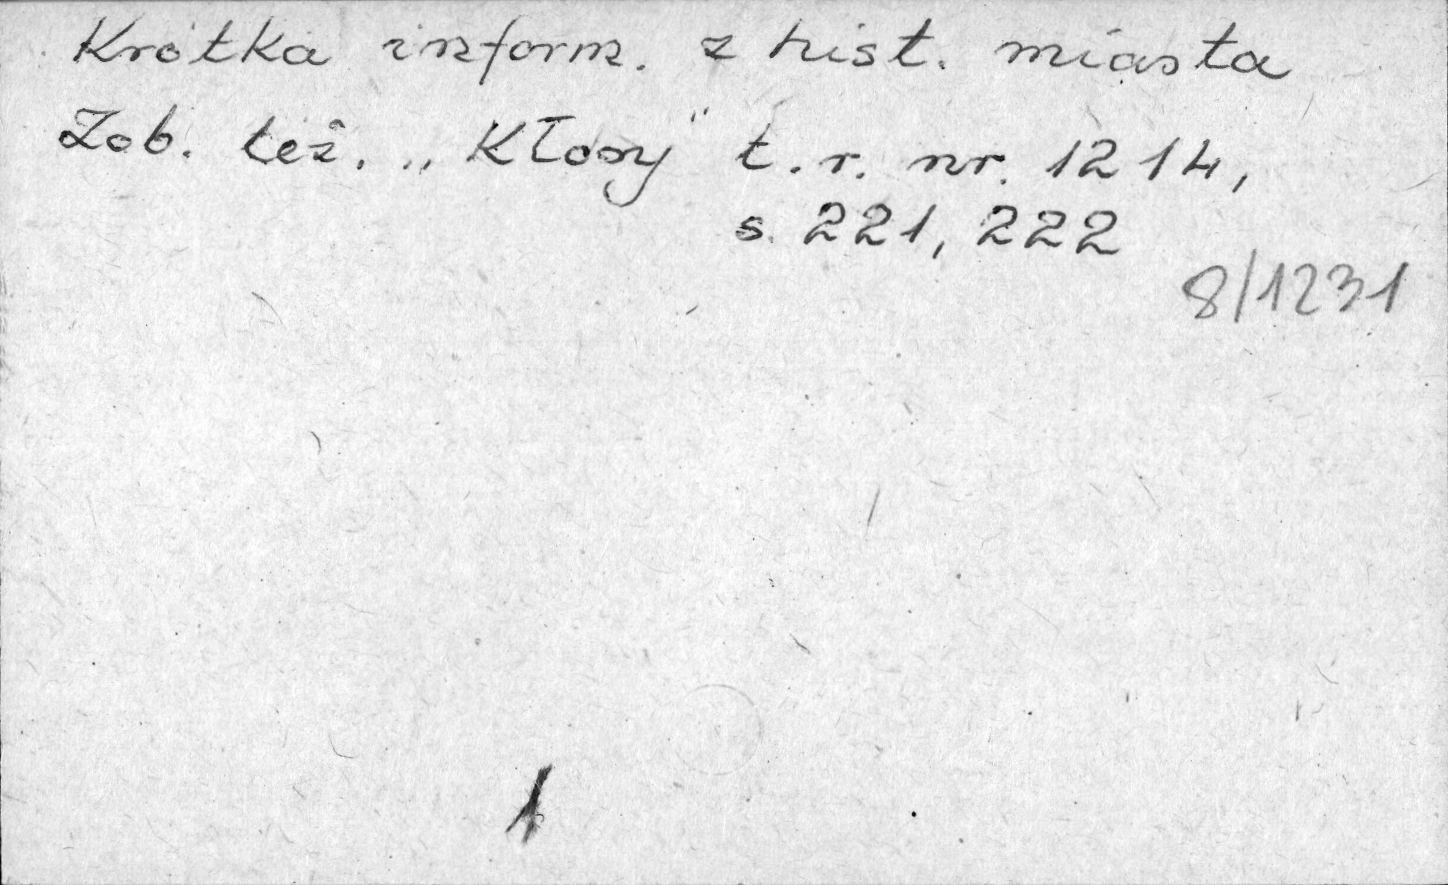 Krótka inform. z hist. miasta
Zob. też. „Kłosy" t. r. nr. 1214,
s. 221, 222
8/1231
1